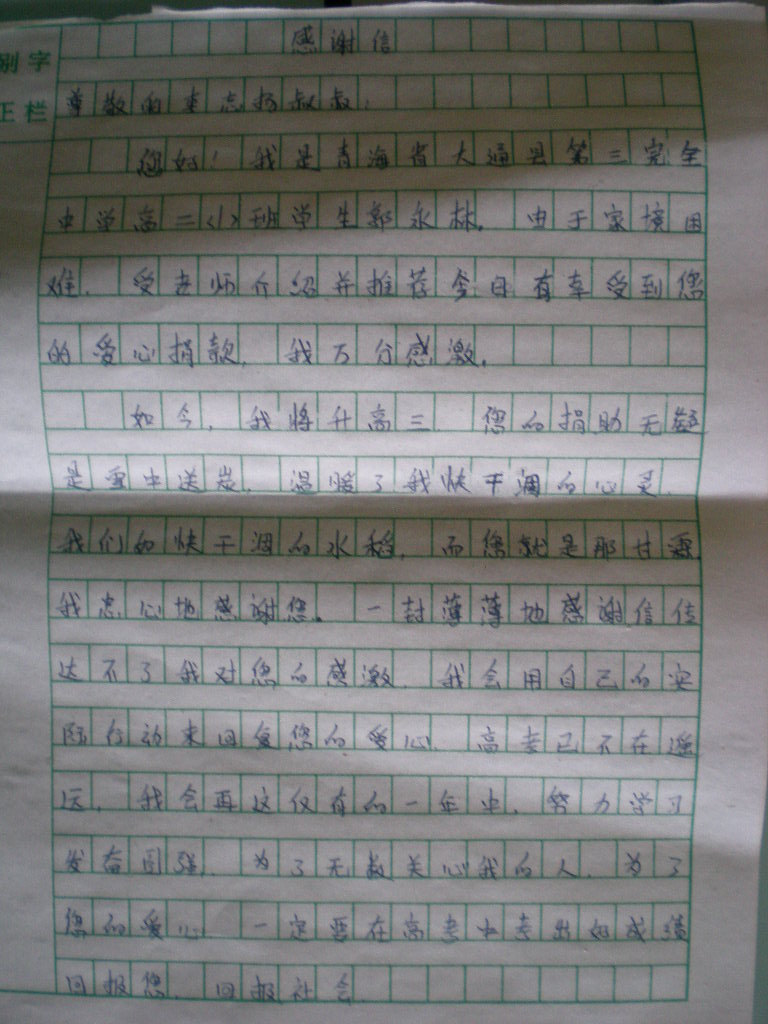 感谢信
别字
正栏
尊敬的李志扬叔叔：
您好！我是青海省大通县第三完全
中学高二〈1〉班学生郭永林。由于家境困
难，受老师介绍并推荐今日有幸受到您
的爱心捐款，我万分感激。
如今，我将升高三，您的捐助无疑
是雪中送炭，温暖了我快干涸的心灵，
我们如快干涸的水稻，而您就是那甘露，
我忠心地感谢您。一封薄薄地感谢信传
达不了我对您的感激，我会用自己的实
际行动来回复您的爱心，高考已不在遥
远，我会再这仅有的一年中，努力学习
发奋图强，为了无数关心我的人，为了
您的爱心，一定要在高考中考出好成绩
回报您，回报社会。